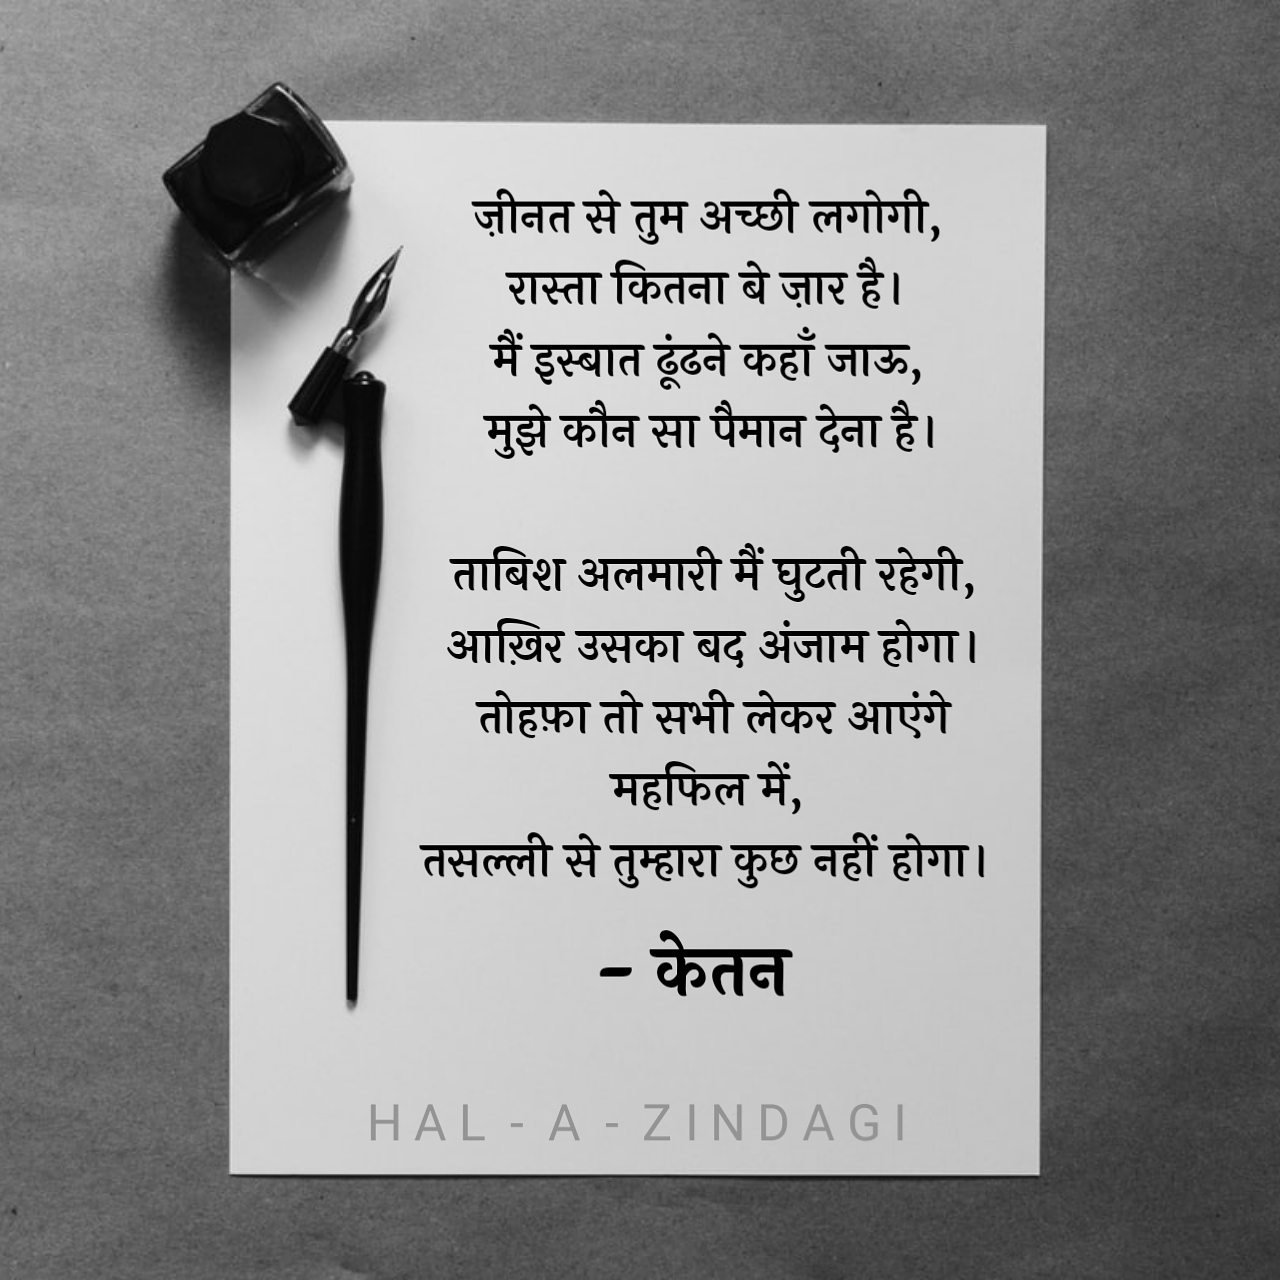 ज़ीनत से तुम अच्छी लगोगी,
रास्ता कितना बे ज़ार है।
मैं इस्बात ढूंढने कहाँ जाऊ,
मुझे कौन सा पैमान देना है।
ताबिश अलमारी मैं घुटती रहेगी,
आख़िर उसका बद अंजाम होगा।
तोहफ़ा तो सभी लेकर आएंगे
महफिल में,
तसल्ली से तुम्हारा कुछ नहीं होगा।
- केतन
HAL - A - ZINDAGI